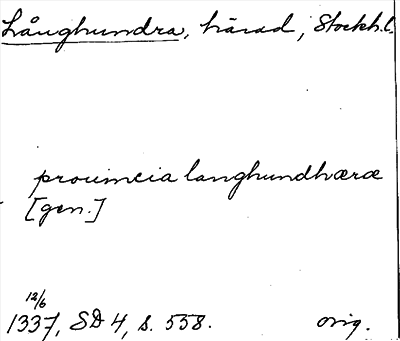 Långhundra, härad, Stockh.l.
prouincia langhundhæræ
[gen.]
12/6
1337, SD 4, s. 558. orig.